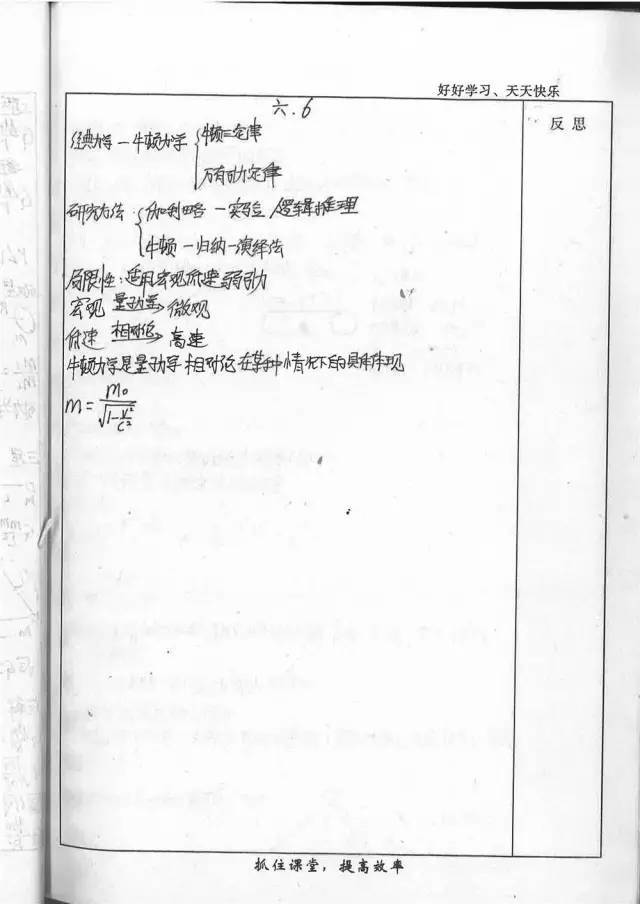 好好学习、天天快乐
六.6
反思
经典力学—牛顿力学 { 牛顿三定律
万有引力定律
研究方法 { 伽利略—实验、逻辑推理
牛顿—归纳—演绎法
局限性:适用宏观低速弱引力
宏观 量子力学→ 微观
低速 相对论→ 高速
牛顿力学是量子力学 相对论在某种情况下的具体体现
m = m₀/√(1-v²/c²)
抓住课堂,提高效率